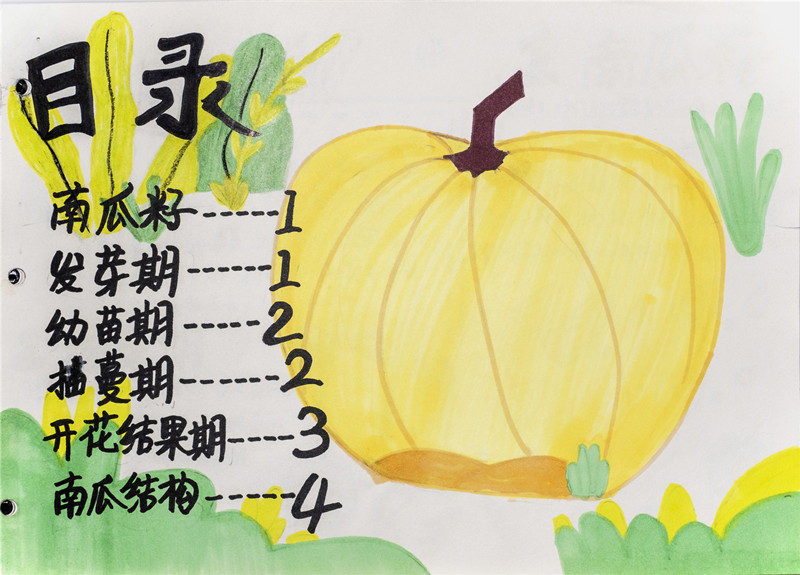 目录
南瓜籽-----1
发芽期-----1
幼苗期-----2
抽蔓期------2
开花结果期----3
南瓜结构-----4